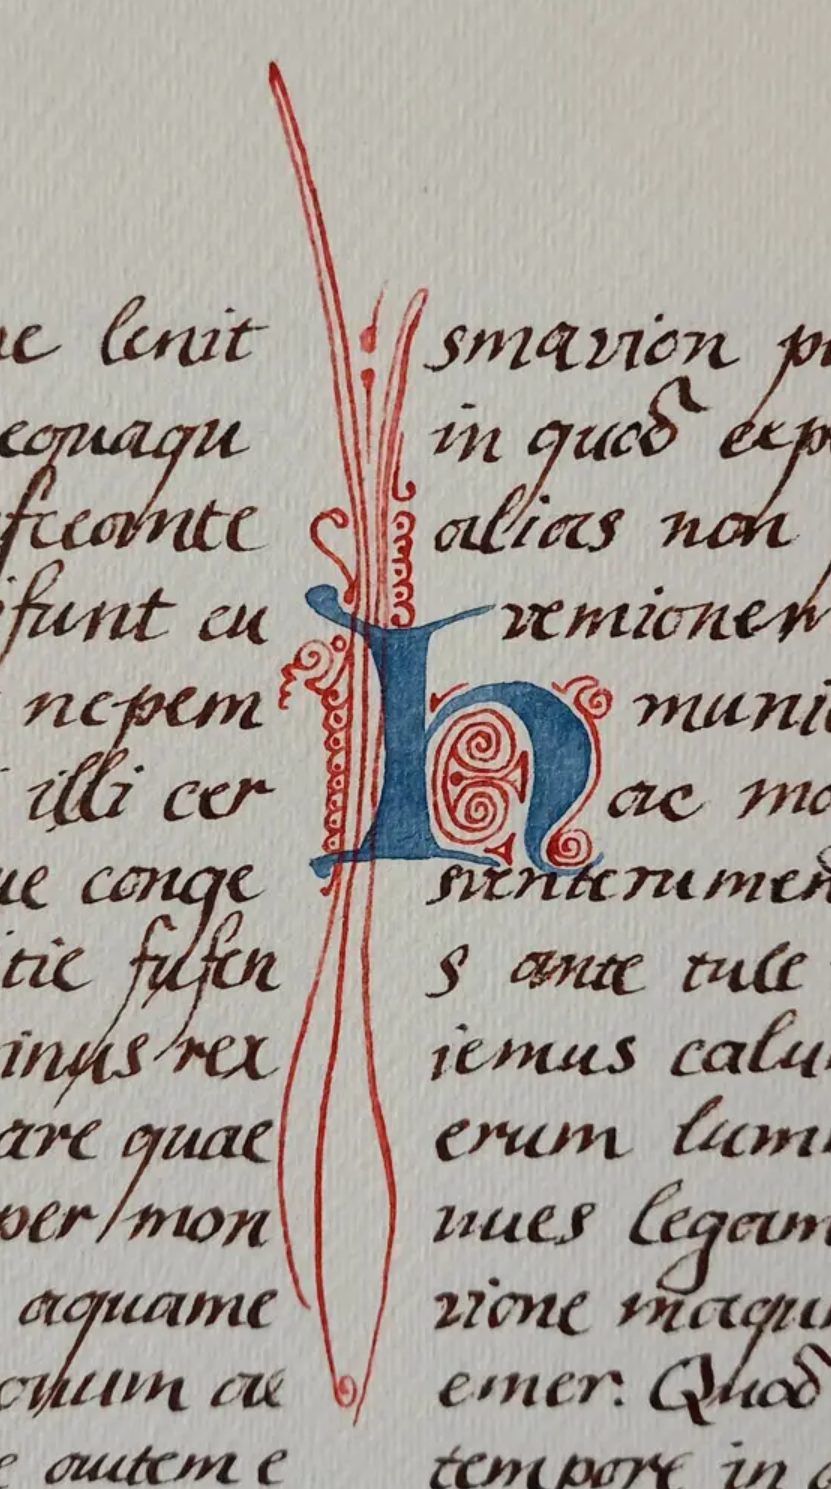 lenit
equaqu
sceante
sunt eu
nepem
illi cer
ue conge
tie fusen
inus rex
are quae
per mon
aquame
onum ae
autem e
h
smarion
in quod exp
alias non
remionem
muni
ac ma
sventerumen
s ante tule
iemus calu
erum lum
nues legam
rione maqu
emer. Quod
tempore in